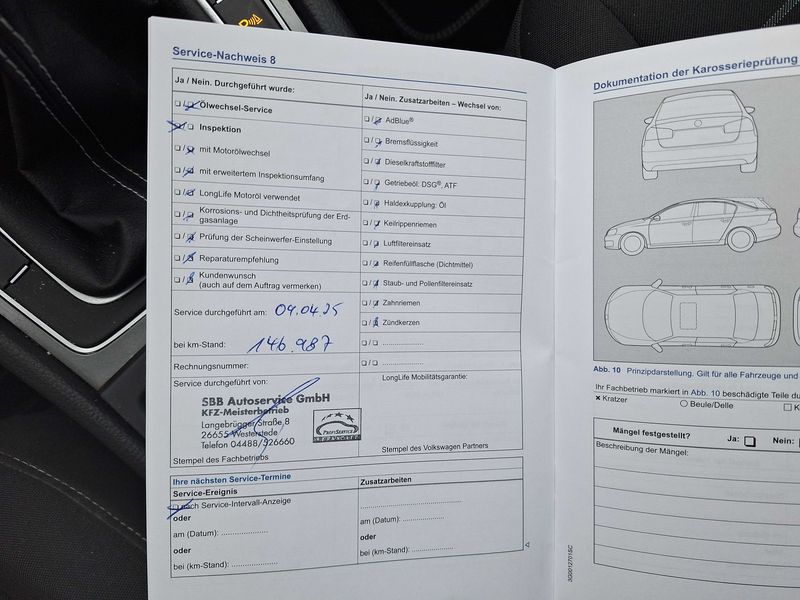 Service-Nachweis 8
Ja / Nein. Durchgeführt wurde:
Ölwechsel-Service
Inspektion
mit Motorölwechsel
mit erweitertem Inspektionsumfang
LongLife Motoröl verwendet
Korrosions- und Dichtheitsprüfung der Erd-
gasanlage
Prüfung der Scheinwerfer-Einstellung
Reparaturempfehlung
Kundenwunsch
(auch auf dem Auftrag vermerken)
Ja / Nein. Zusatzarbeiten – Wechsel von:
AdBlue®
Bremsflüssigkeit
Dieselkraftstofffilter
Getriebeöl: DSG®, ATF
Haldexkupplung: Öl
Keilrippenriemen
Luftfiltereinsatz
Reifenfüllflasche (Dichtmittel)
Staub- und Pollenfiltereinsatz
Zahnriemen
Zündkerzen
Service durchgeführt am: 09.04.25
bei km-Stand: 146.987
Rechnungsnummer:
Service durchgeführt von:
SBB Autoservice GmbH
KFZ-Meisterbetrieb
Langebrügger Straße 8
26655 Westerstede
Telefon 04488/526660
PROFISERVICE
WERKSTATT
Stempel des Fachbetriebs
LongLife Mobilitätsgarantie:
Stempel des Volkswagen Partners
Ihre nächsten Service-Termine
Service-Ereignis
nach Service-Intervall-Anzeige
oder
am (Datum): ....................
oder
bei (km-Stand): ....................
Zusatzarbeiten
am (Datum): ....................
oder
bei (km-Stand): ....................
Dokumentation der Karosserieprüfung
Abb. 10 Prinzipdarstellung. Gilt für alle Fahrzeuge und
Ihr Fachbetrieb markiert in Abb. 10 beschädigte Teile du
Kratzer
Beule/Delle
K
Mängel festgestellt? Ja: Nein:
Beschreibung der Mängel:
3G0012701SC